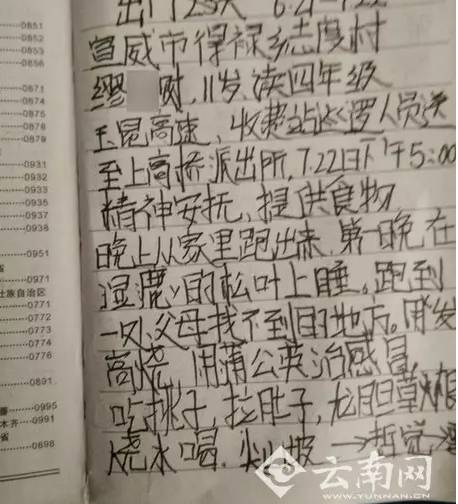 出门23天 6.21-7.22
宣威市得禄乡志度村
缪 财,11岁,读四年级
玉昆高速,收费站巡逻人员送
至上高桥派出所,7.22日下午5:00
精神安抚,提供食物
晚上从家里跑出来,第一晚在
湿漉漉的松叶上睡。跑到
一父母找不到目的地方。
高烧,用蒲公英治感冒,
吃桃子,拉肚子,龙胆草
烧水喝.
云南网
WWW.YUNNAN.CN
0851
0852
0853
0856
0871
0874
0875
0878
0879
0931
0932
0933
0935
0937
0938
0951
省
0971
壮族自治区
0771
0772
0773
0774
0776
0891
0995
本齐 0991
省
0898